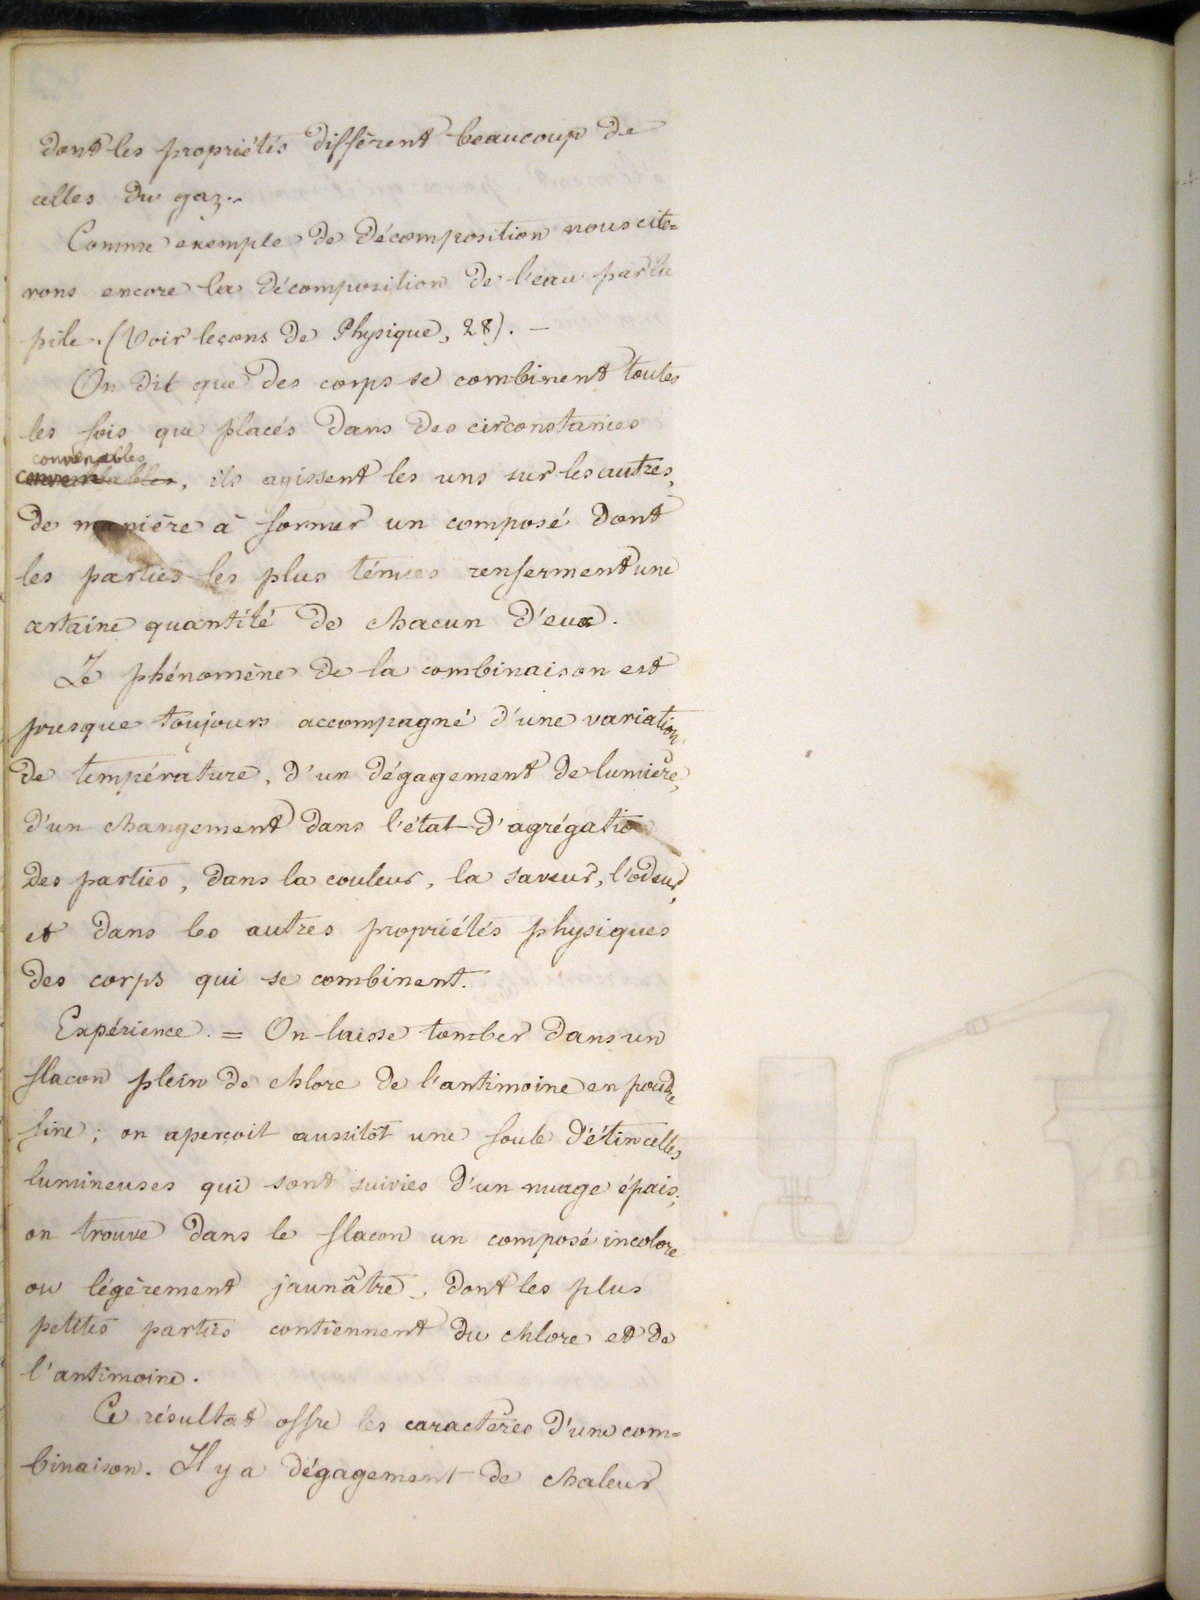 dont les propriétés diffèrent beaucoup de
celles du gaz..
Comme exemple de décomposition nous cite=
rons encore la décomposition de l'eau par la
pile. (Voir leçons de Physique, 28). —
On dit que des corps se combinent toutes
les fois que placés dans des circonstances
convenables
convenables, ils agissent les uns sur les autres,
de manière à former un composé dont
les parties les plus ténues renferment une
certaine quantité de chacun d'eux.
Le phénomène de la combinaison est
presque toujours accompagné d'une variation
de température, d'un dégagement de lumière,
d'un changement dans l'état d'agrégation
des parties, dans la couleur, la saveur, l'odeur,
et dans les autres propriétés physiques
des corps qui se combinent.
Expérience. = On laisse tomber dans un
flacon plein de chlore de l'antimoine en poudre
fine; on aperçoit aussitôt une foule d'étincelles
lumineuses qui sont suivies d'un nuage épais;
on trouve dans le flacon un composé incolore
ou légèrement jaunâtre, dont les plus
petites parties contiennent du chlore et de
l'antimoine.
Ce résultat offre les caractères d'une com=
binaison. Il y a dégagement de chaleur